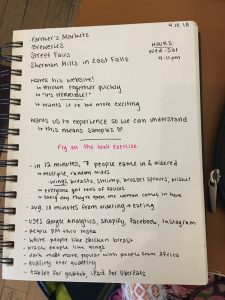 Farmer's Markets
Breweries
Street Fairs
Sherman Mills in East Falls
4.10.18
HOURS:
Wed - Sat
4-11 pm
Hates his website!
↳ thrown together quickly
↳ "IT'S HORRIBLE!"
↳ Wants it to be more exciting
Wants us to experience so we can understand
↳ this means samples ♡
Fly on the Wall Exercise
- in 12 minutes, 7 people came in & ordered
↳ multiple, random mixes
↳ wings, breasts, shrimp, brussel sprouts, brisket
↳ everyone got tons of sauces
↳ every day they're open one woman comes in here
- avg. 10 minutes from ordering → eating
- uses Google Analytics, Shopify, Facebook, Instagram
- people DM thru insta
- white people like chicken breast
- black people like wings
- dark meat more popular with people from Africa
- quality over quantity
- tablet for grubhub, iPad for UberEats